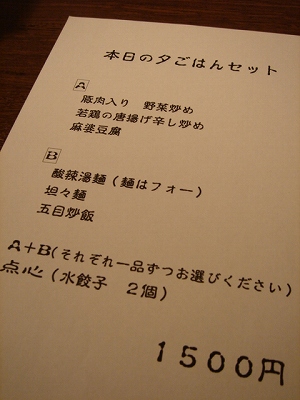 本日の夕ごはんセット
A
豚肉入り 野菜炒め
若鶏の唐揚げ辛し炒め
麻婆豆腐
B
酸辣湯麺(麺はフォー)
坦々麺
五目炒飯
A+B(それぞれ一品ずつお選びください)
点心(水餃子 2個)
1500円